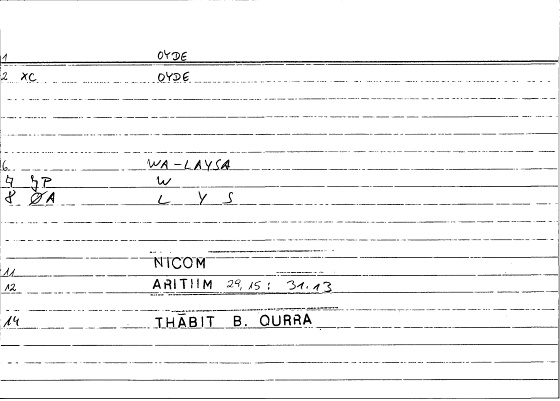 1 OYDE
2 XC OYDE
6. WA-LAYSA
7 JP W
8 ØA L Y S
11 NICOM
12 ARITIIM 29,15: 31.13
14 THABIT B. QURRA